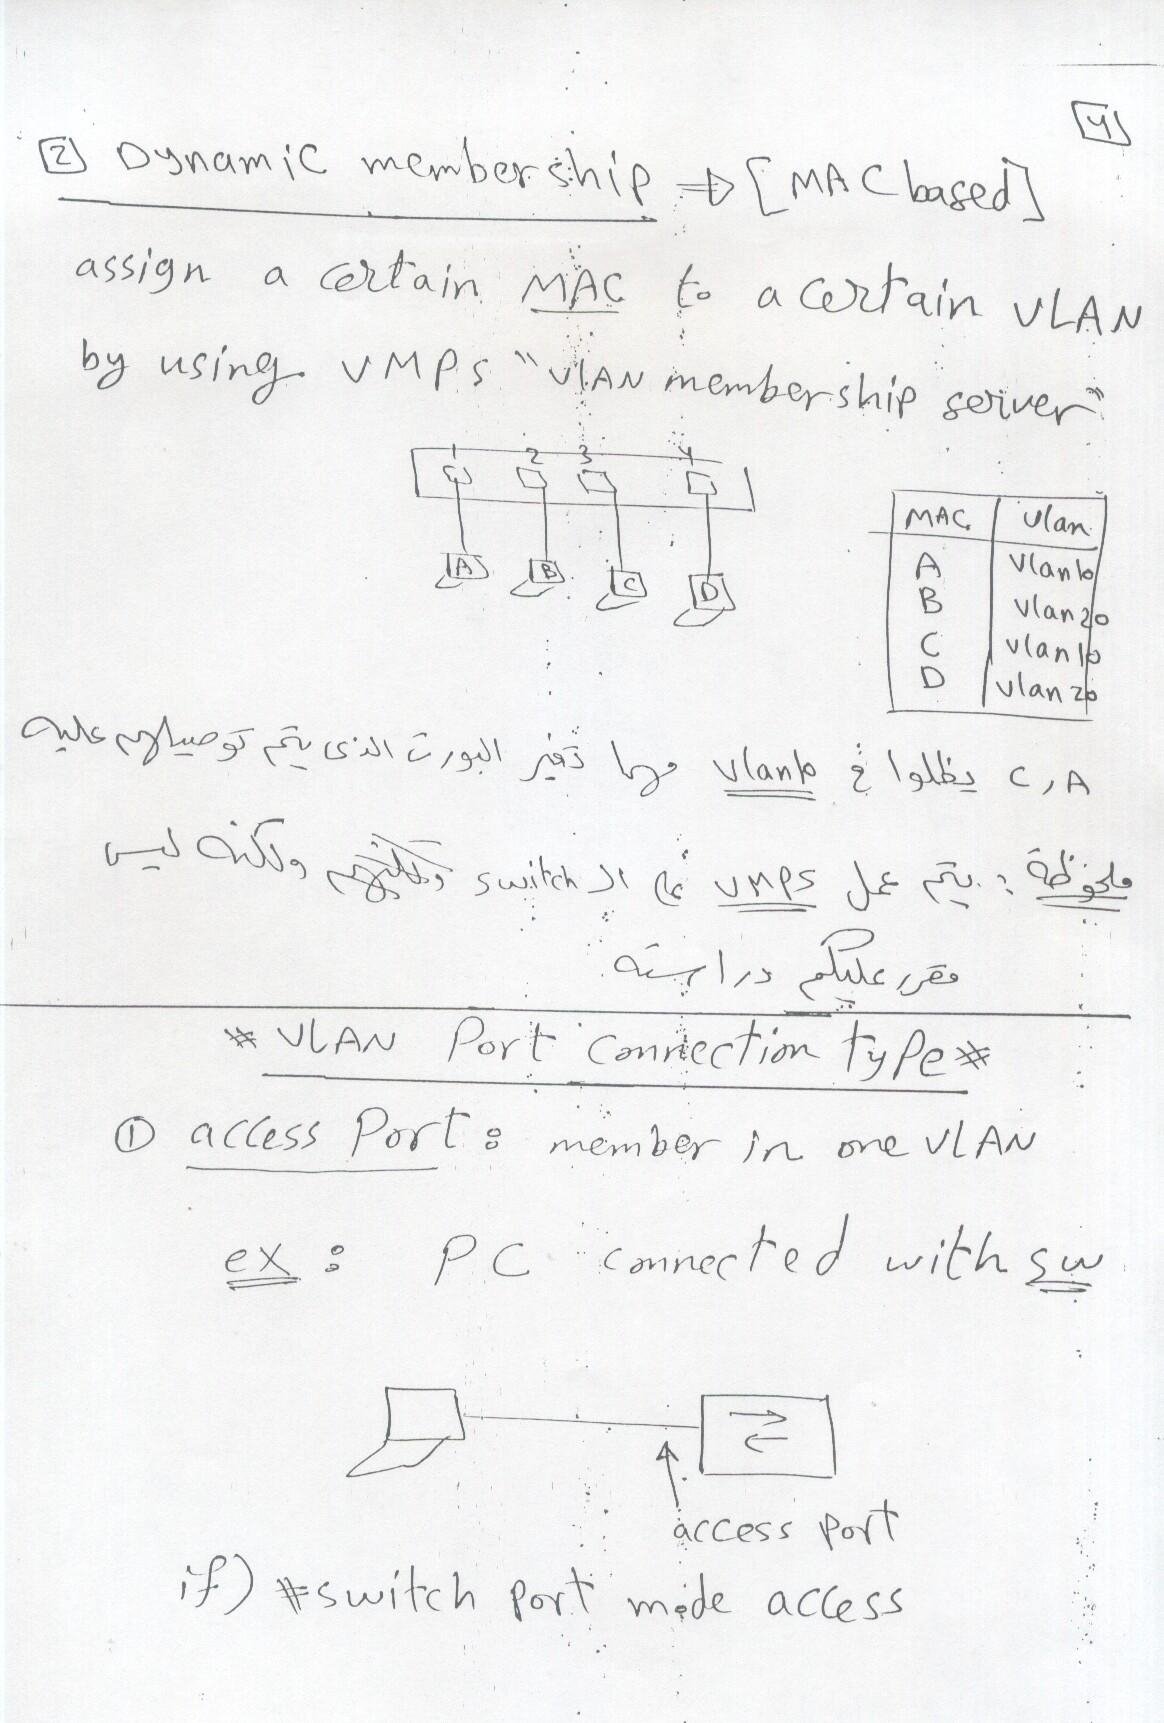 4
2 Dynamic membership ⇒ [MAC based]
assign a certain MAC to a certain VLAN
by using VMPS "VLAN membership server"
1 2 3 4
A B C D
MAC vlan
A Vlan10
B Vlan20
C vlan10
D vlan20
C, A يظلوا في vlan10 مهما تغير البورت الذى يتم توصيلهم عليه
ملحوظة: يتم عمل VMPS على الـ switch ولكنه ليس
مقرر عليكم دراسته
# VLAN Port connection type #
① access Port: member in one VLAN
ex: PC connected with sw
access port
if) #switch port mode access